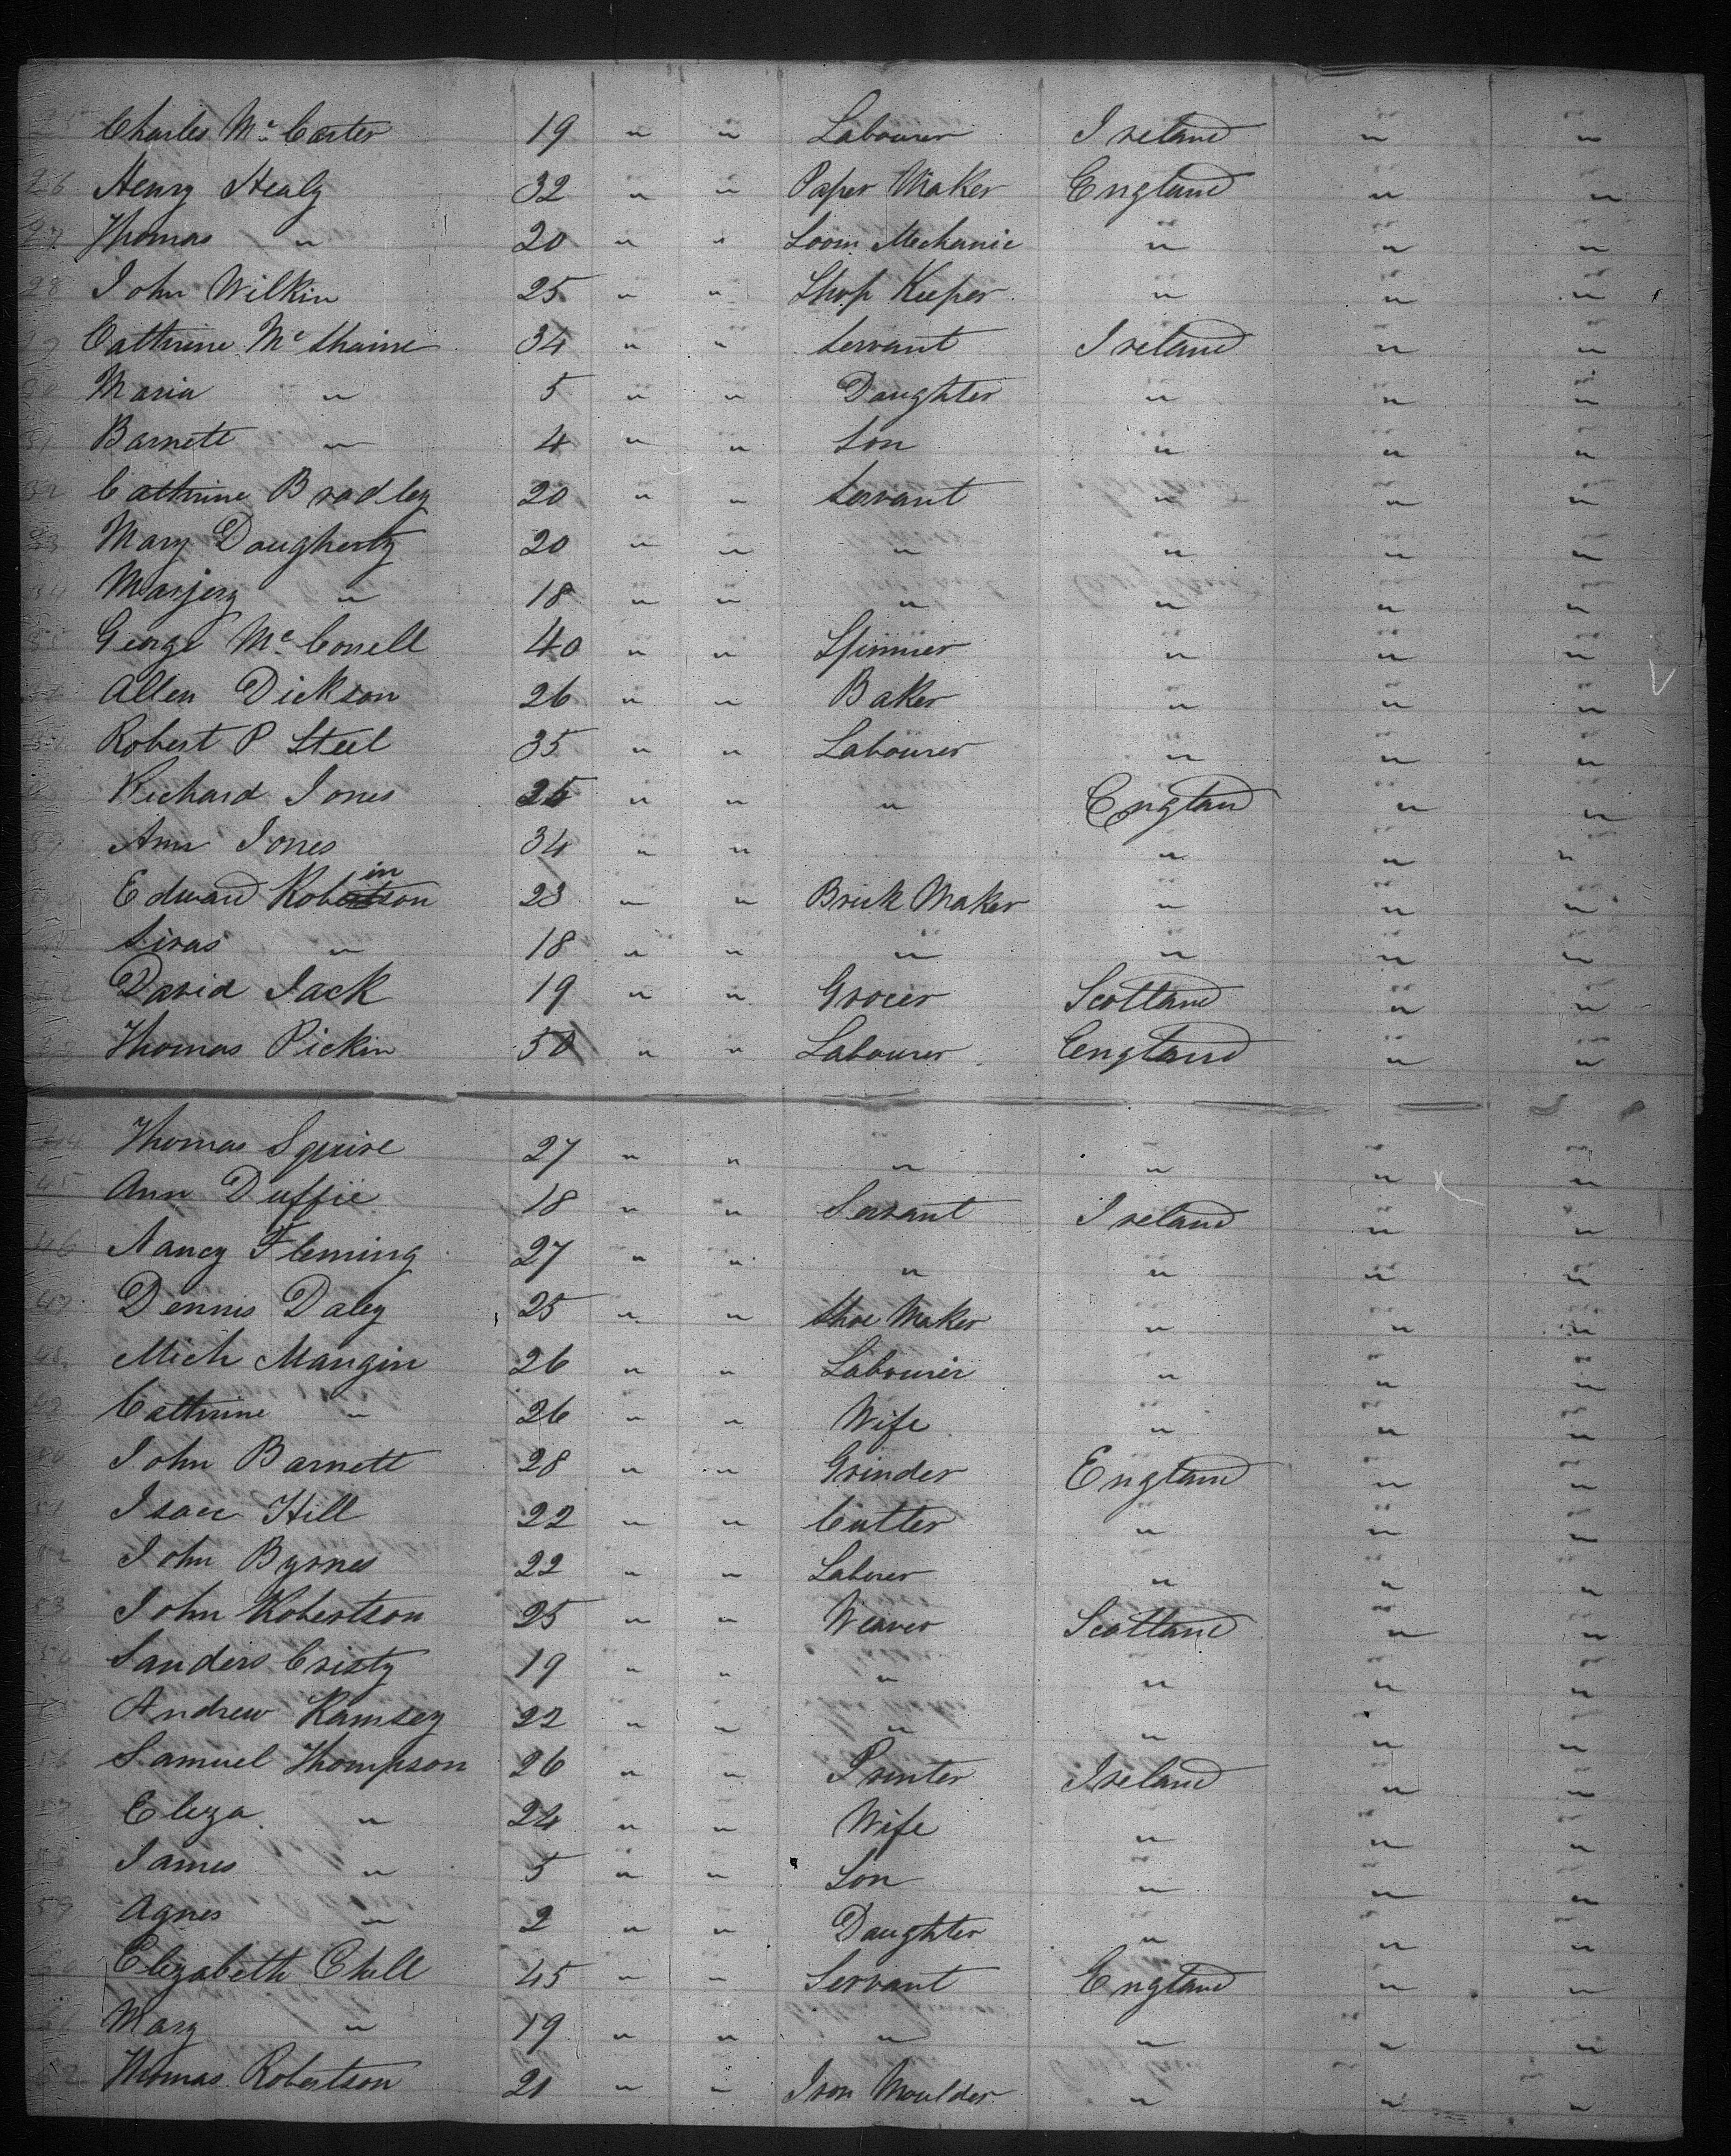 25 Charles Mc Carter 19 " " Labourer Ireland " "
26 Henry Healy 32 " " Paper Maker England " "
27 Thomas " 20 " " Loom Mechanic " " "
28 John Wilkin 25 " " Shop Keeper " " "
29 Cathrine Mc Shaine 34 " " Servant Ireland " "
30 Maria " 5 " " Daughter " " "
31 Barnett " 4 " " Son " " "
32 Cathrine Bradley 20 " " Servant " " "
33 Mary Dougherty 20 " " " " " "
34 Marjery " 18 " " " " " "
35 George Mc Conell 40 " " Spinner " " "
Allen Dickson 26 " " Baker " " "
Robert P Steel 35 " " Labourer " " "
Richard Jones 25 " " " England " "
39 Ann Jones 34 " " " " "
Edward Robinson 23 " " Brick Maker " " "
" 18 " " " " " "
David Jack 19 " " Grocer Scotland " "
Thomas Pickin 50 " " Labourer England " "
44 Thomas Squire 27 " " " " " "
45 Ann Duffie 18 " " Servant Ireland " "
46 Nancy Fleming 27 " " " " " "
47 Dennis Daley 25 " " Shoe Maker " " "
48 Mich Mangin 26 " " Labourer " " "
49 Cathrine " 26 " " Wife " " "
50 John Barnett 28 " " Grinder England " "
51 Isaac Hill 22 " " Cutter " " "
52 John Byrnes 22 " " Laborer " " "
53 John Robertson 25 " " Weaver Scotland " "
54 Sanders Cristy 19 " " " " " "
Andrew Ramsey 22 " " " " " "
56 Samuel Thompson 26 " " Printer Ireland " "
57 Eliza " 24 " " Wife " " "
58 James " 5 " " Son " " "
59 Agnes " 2 " " Daughter " " "
Elizabeth Chell 45 " " Servant England " "
Mary " 19 " " " " " "
62 Thomas Robertson 21 " " Iron Moulder " " "